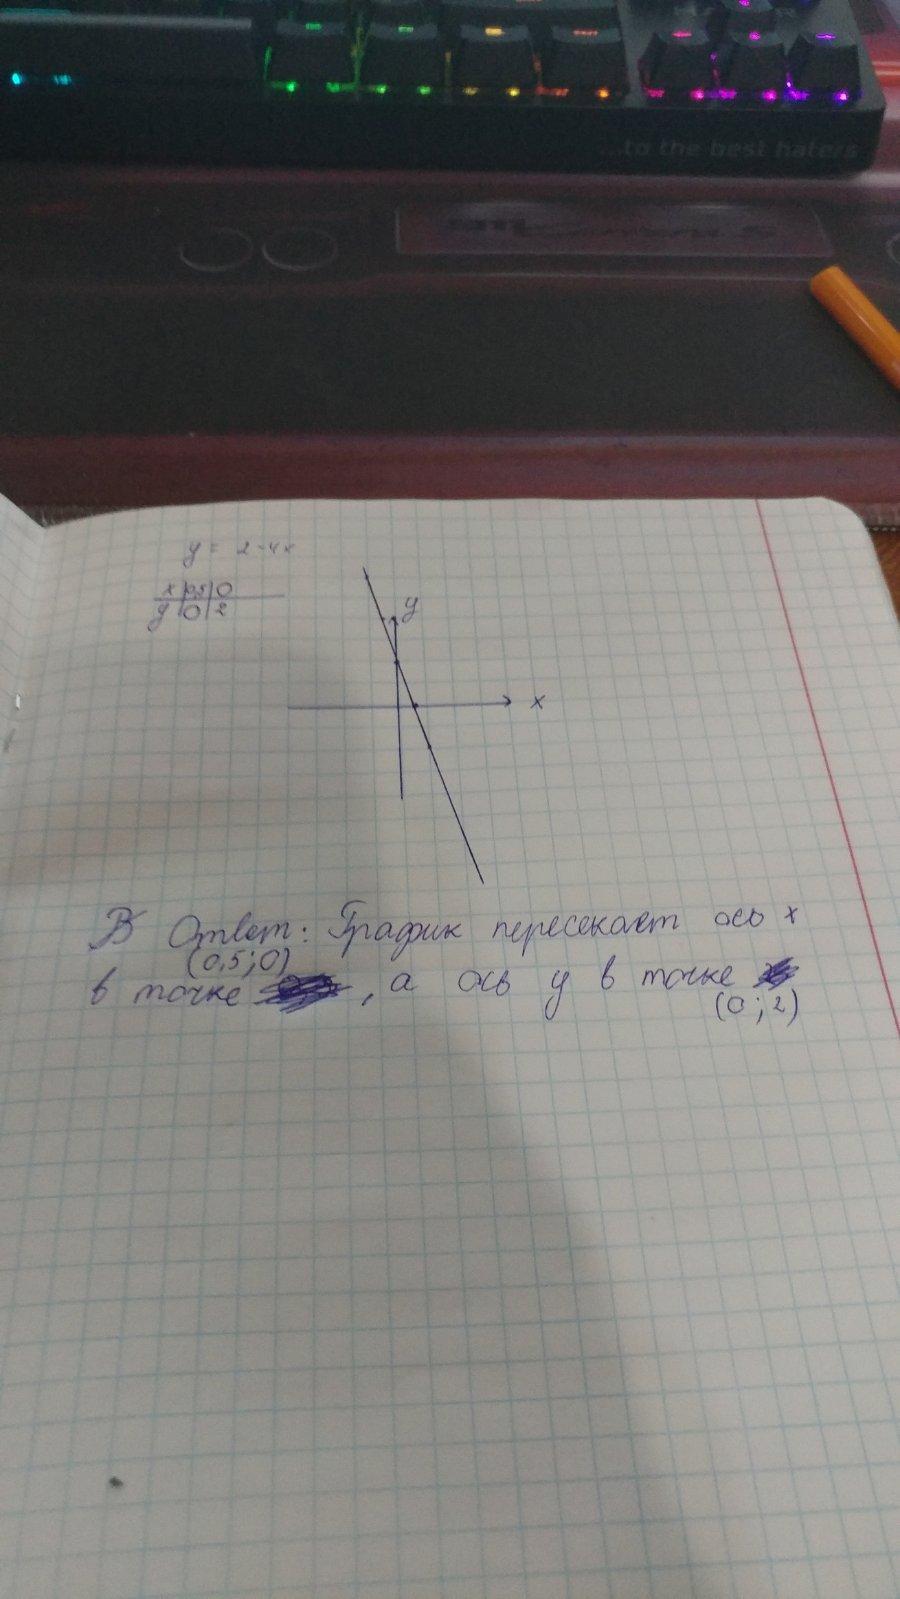 ...to the best haters
y = 2-4x
x | 0,5 | 0
y | 0 | 2
y
x
В Ответ: График пересекает ось x
(0,5; 0)
в точке , а ось y в точке
(0; 2)